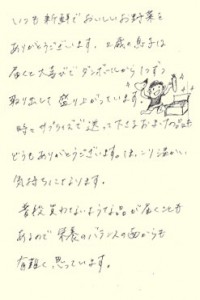 いつも新鮮でおいしいお野菜を
ありがとうございます。 歳の息子は
届くと大喜びでダンボールから1つずつ
取り出して盛り上がっています。
時々サプライズで送って下さるおまけの品も
どうもありがとうございます。ほっこり温かい
気持ちになります。
普段買わないような品が届くことも
あるので栄養のバランスの面からも
有難く思っています。